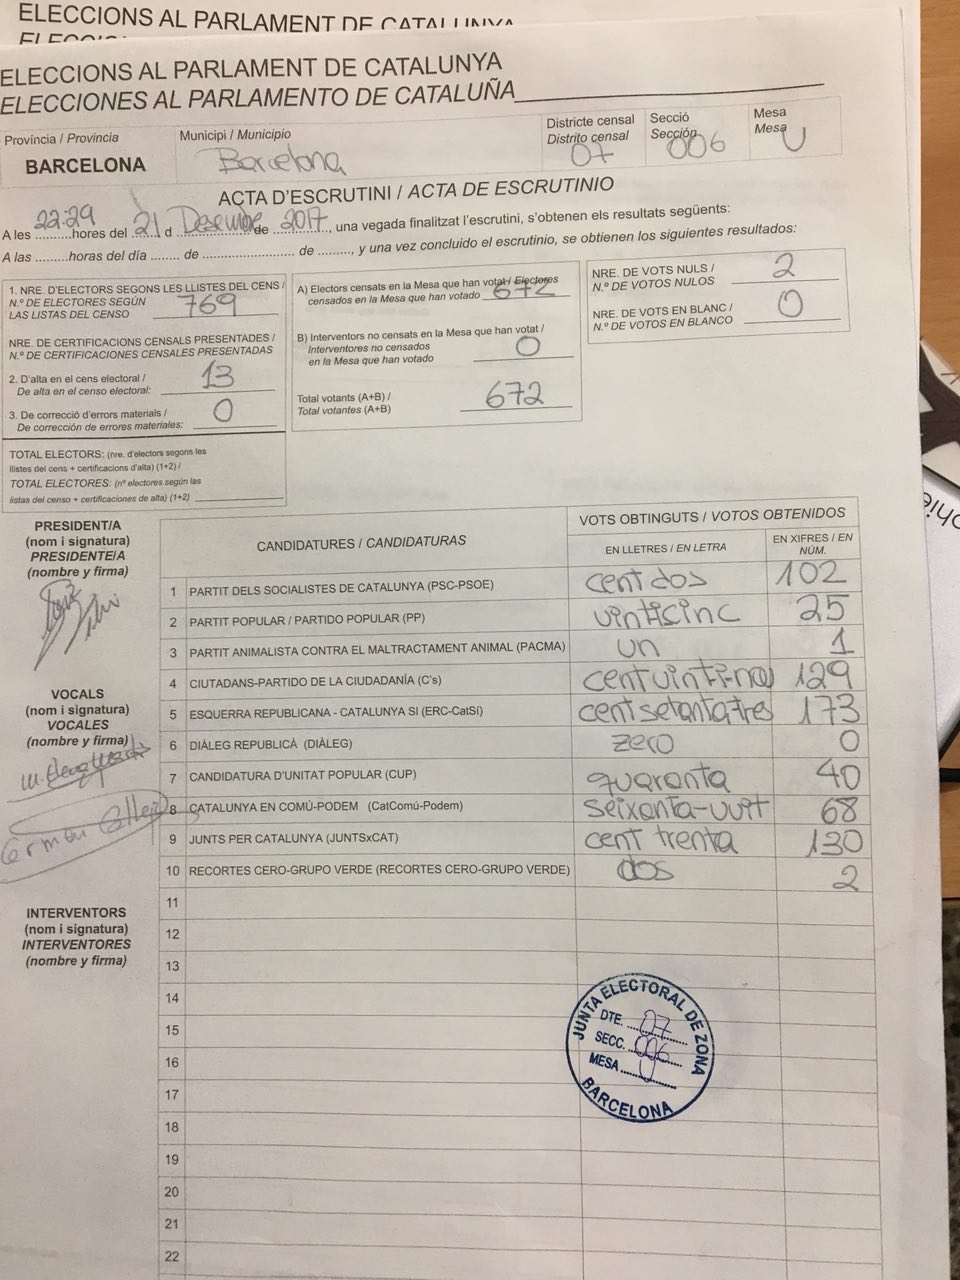 ELECCIONS AL PARLAMENT DE CATALUNYA
ELECCIONS AL PARLAMENT DE CATALUNYA
ELECCIONES AL PARLAMENTO DE CATALUÑA
Província / Provincia
BARCELONA
Municipi / Municipio
Barcelona
Districte censal
Distrito censal
07
Secció
Sección
006
Mesa
Mesa
U
ACTA D'ESCRUTINI / ACTA DE ESCRUTINIO
A les 22:29 hores del 21 d Desembre de 2017, una vegada finalitzat l'escrutini, s'obtenen els resultats següents:
A las .........horas del día ........ de ........................ de ........., y una vez concluido el escrutinio, se obtienen los siguientes resultados:
1. NRE. D'ELECTORS SEGONS LES LLISTES DEL CENS /
N.º DE ELECTORES SEGÚN
LAS LISTAS DEL CENSO 769
NRE. DE CERTIFICACIONS CENSALS PRESENTADES /
N.º DE CERTIFICACIONES CENSALES PRESENTADAS
2. D'alta en el cens electoral /
De alta en el censo electoral: 13
3. De correcció d'errors materials /
De corrección de errores materiales: 0
TOTAL ELECTORS: (nre. d'electors segons les
llistes del cens + certificacions d'alta) (1+2) /
TOTAL ELECTORES: (nº electores según las
listas del censo + certificaciones de alta) (1+2)
A) Electors censats en la Mesa que han votat / Electores
censados en la Mesa que han votado 672
B) Interventors no censats en la Mesa que han votat /
Interventores no censados
en la Mesa que han votado 0
Total votants (A+B) /
Total votantes (A+B) 672
NRE. DE VOTS NULS /
N.º DE VOTOS NULOS 2
NRE. DE VOTS EN BLANC /
N.º DE VOTOS EN BLANCO 0
PRESIDENT/A
(nom i signatura)
PRESIDENTE/A
(nombre y firma)
VOCALS
(nom i signatura)
VOCALES
(nombre y firma)
INTERVENTORS
(nom i signatura)
INTERVENTORES
(nombre y firma)
CANDIDATURES / CANDIDATURAS
VOTS OBTINGUTS / VOTOS OBTENIDOS
EN LLETRES / EN LETRA
EN XIFRES / EN
NÚM.
1 PARTIT DELS SOCIALISTES DE CATALUNYA (PSC-PSOE) cent dos 102
2 PARTIT POPULAR / PARTIDO POPULAR (PP) vinticinc 25
3 PARTIT ANIMALISTA CONTRA EL MALTRACTAMENT ANIMAL (PACMA) un 1
4 CIUTADANS-PARTIDO DE LA CIUDADANÍA (C's) cent vint-i-nou 129
5 ESQUERRA REPUBLICANA - CATALUNYA SI (ERC-CatSí) cent setanta-tres 173
6 DIÀLEG REPUBLICÀ (DIÀLEG) zero 0
7 CANDIDATURA D'UNITAT POPULAR (CUP) quaranta 40
8 CATALUNYA EN COMÚ-PODEM (CatComú-Podem) seixanta-vuit 68
9 JUNTS PER CATALUNYA (JUNTSxCAT) cent trenta 130
10 RECORTES CERO-GRUPO VERDE (RECORTES CERO-GRUPO VERDE) dos 2
11
12
13
14
15
16
17
18
19
20
21
22
JUNTA ELECTORAL DE ZONA
DTE. 07
SECC. 006
MESA U
BARCELONA